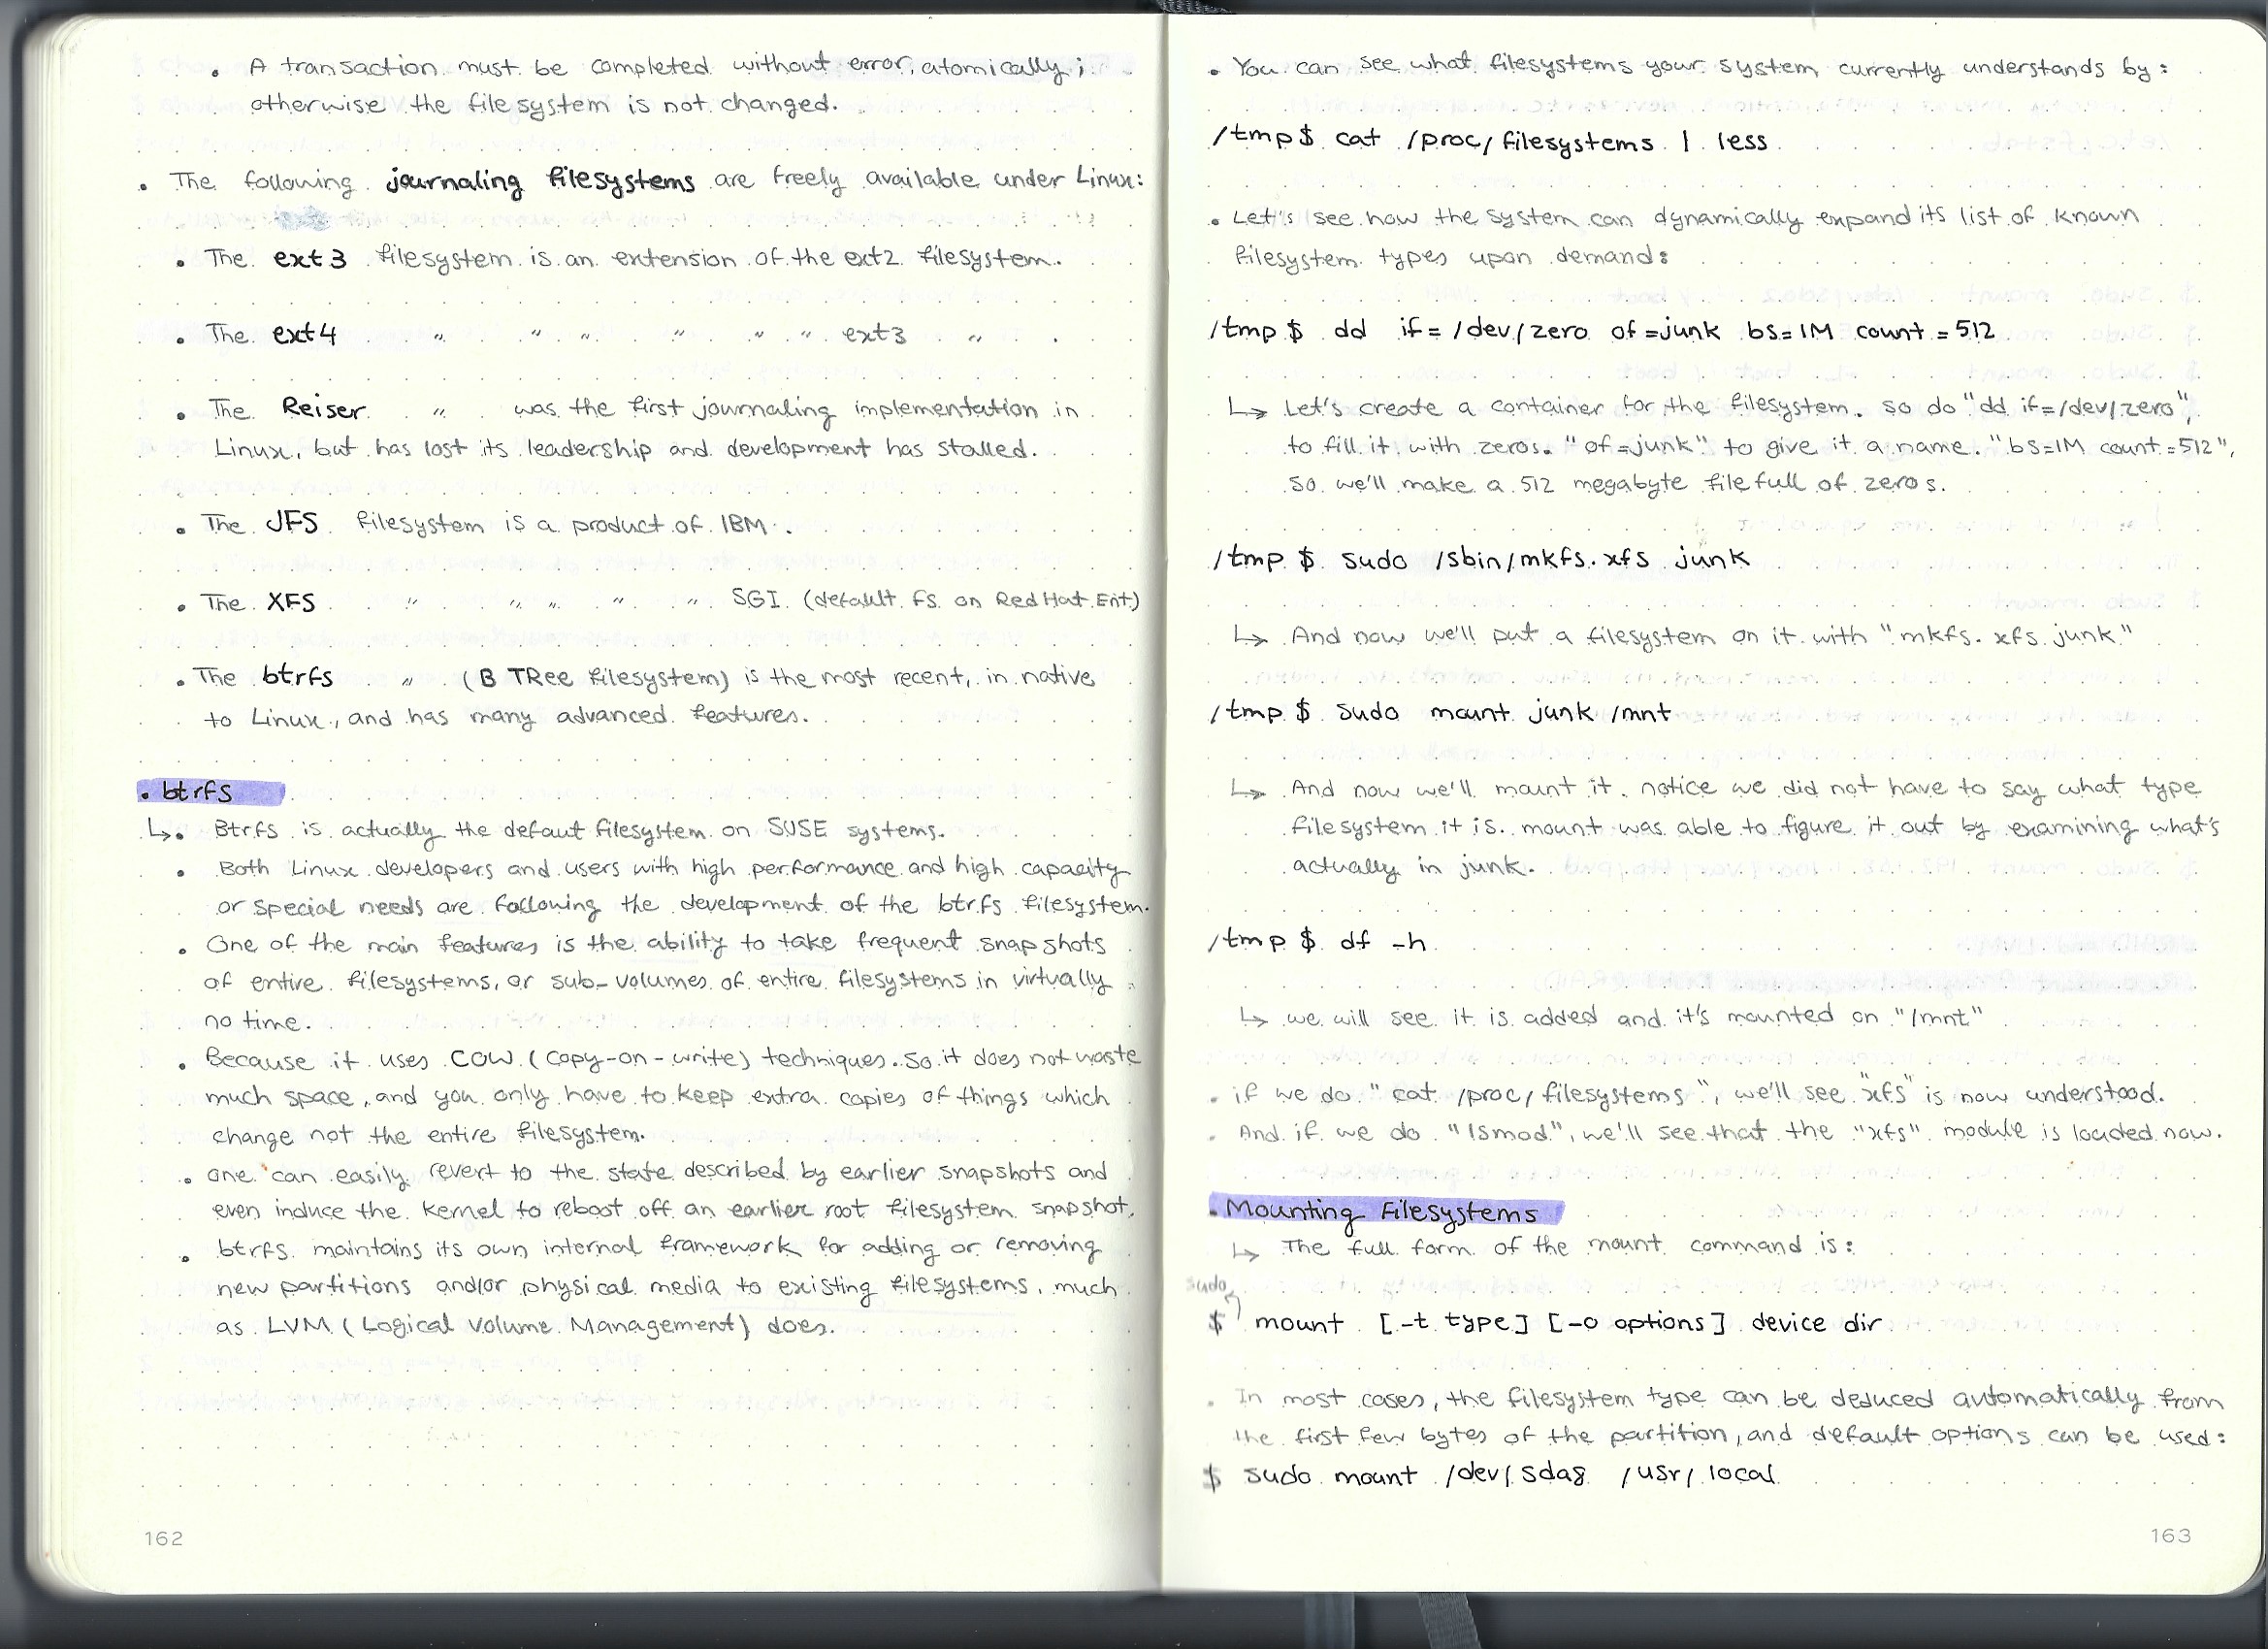 . A transaction must be completed without error, atomically;
otherwise the filesystem is not changed.
. The following journaling filesystems are freely available under Linux:
. The ext3 filesystem is an extension of the ext2 filesystem.
. The ext4 " " " " " " ext3 " .
. The Reiser " was the first journaling implementation in
Linux, but has lost its leadership and development has stalled.
. The JFS filesystem is a product of IBM.
. The XFS " " " " " SGI (default fs on Red Hat Ent.)
. The btrfs " (B TRee filesystem) is the most recent, in native
to Linux, and has many advanced features.
. btrfs
↳. Btrfs is actually the defaut filesystem on SUSE systems.
. Both Linux developers and users with high performance and high capacity
or special needs are following the development of the btrfs filesystem.
. One of the main features is the ability to take frequent snapshots
of entire filesystems, or sub-volumes of entire filesystems in virtually
no time.
. Because it uses COW (copy-on-write) techniques. So it does not waste
much space, and you only have to keep extra copies of things which
change not the entire filesystem.
. one can easily revert to the state described by earlier snapshots and
even induce the kernel to reboot off an earlier root filesystem snapshot.
. btrfs maintains its own internal framework for adding or removing
new partitions and/or physical media to existing filesystems, much
as LVM (Logical Volume Management) does.
162
. You can see what filesystems your system currently understands by:
/tmp$ cat /proc/filesystems | less
. Let's see how the system can dynamically expand its list of known
filesystem types upon demand:
/tmp $ dd if=/dev/zero of=junk bs=1M count=512
↳ Let's create a container for the filesystem. so do "dd if=/dev/zero",
to fill it with zeros. "of=junk" to give it a name. "bs=1M count=512",
so we'll make a 512 megabyte file full of zeros.
/tmp $ sudo /sbin/mkfs.xfs junk
↳ And now we'll put a filesystem on it with "mkfs.xfs junk"
/tmp $ sudo mount junk /mnt
↳ And now we'll mount it. notice we did not have to say what type
filesystem it is. mount was able to figure it out by examining what's
actually in junk.
/tmp $ df -h
↳ we will see it is added and it's mounted on "/mnt"
. if we do "cat /proc/filesystems", we'll see "xfs" is now understood.
. And if we do "lsmod", we'll see that the "xfs" module is loaded now.
. Mounting Filesystems
↳ The full form of the mount command is:
sudo
$ mount [-t type] [-o options] device dir
. In most cases, the filesystem type can be deduced automatically from
the first few bytes of the partition, and default options can be used:
$ sudo mount /dev/sda8 /usr/local
163